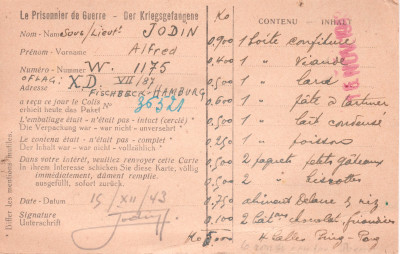 Le Prisonnier de Guerre - Der Kriegsgefangene
Nom - Name Sous/Lieut. JODIN
Prénom - Vorname Alfred
Numéro - Nummer W. 1175
OFLAG: X.D. VII/87
Adresse FISCHBECK-HAMBURG
a reçu ce jour le Colis
erhielt heute das Paket No 36321
L'emballage était - n'était pas - intact (cerclé) *
Die Verpackung war - war nicht - unversehrt *
Le contenu était - n'était pas - complet *
Der Inhalt war - war nicht - vollzählich *
Dans votre intérêt, veuillez renvoyer cette Carte
in ihrem Interesse schicken Sie diese Karte, völlig
immédiatement, dûment remplie.
ausgefüllt, sofort zurück.
Date - Datum 15/XII/43
Signature
Unterschrift Jodin
* Biffer les mentions inutiles.
Ko CONTENU - INHALT
0,900 1 boîte confiture
0,400 1 " viande
0,500 1 " lard
0,600 1 " pâte à tartiner
0,500 1 " lait condensé
0,250 1 " poissons
0,500 2 paquets petits gâteaux
0,500 2 " biscottes
0,750 aliment Delacre & riz
0,100 2 chocolat friandises
Ko 5,000 4 balles Ping-Pong
NOV